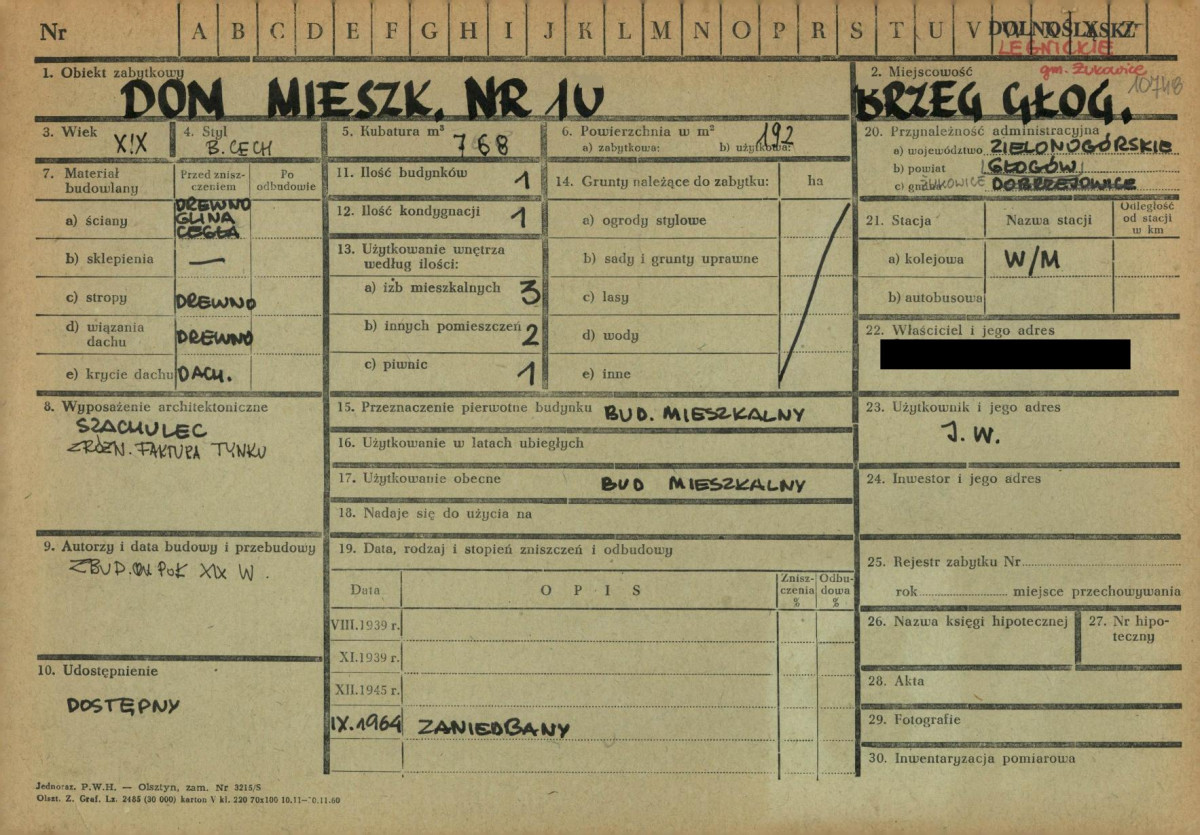 Nr A B C D E F G H I J K L M N O P R S T U V DOLNOŚLĄSKZ
LEGNICKIE
gm. Żukowice
10748
1. Obiekt zabytkowy
DOM MIESZK. NR 10
2. Miejscowość
BRZEG GŁOG.
3. Wiek
XIX
4. Styl
B. CECH
5. Kubatura m³
768
6. Powierzchnia w m²
192
a) zabytkowa: b) użytkowa:
7. Materiał budowlany
Przed zniszczeniem
Po odbudowie
a) ściany
DREWNO
GLINA
CEGŁA
b) sklepienia —
c) stropy DREWNO
d) wiązania dachu DREWNO
e) krycie dachu DACH.
8. Wyposażenie architektoniczne
SZACHULEC
ZRÓŻN. FAKTURA TYNKU
9. Autorzy i data budowy i przebudowy
ZBUD. POŁ XIX W.
10. Udostępnienie
DOSTĘPNY
11. Ilość budynków 1
12. Ilość kondygnacji 1
13. Użytkowanie wnętrza
według ilości:
a) izb mieszkalnych 3
b) innych pomieszczeń 2
c) piwnic 1
14. Grunty należące do zabytku: ha
a) ogrody stylowe
b) sady i grunty uprawne
c) lasy
d) wody
e) inne
15. Przeznaczenie pierwotne budynku BUD. MIESZKALNY
16. Użytkowanie w latach ubiegłych
17. Użytkowanie obecne BUD MIESZKALNY
18. Nadaje się do użycia na
19. Data, rodzaj i stopień zniszczeń i odbudowy
Data OPIS Zniszczenia % Odbudowa %
VIII.1939 r.
XI.1939 r.
XII.1945 r.
IX.1964 ZANIEDBANY
20. Przynależność administracyjna
a) województwo ZIELONOGÓRSKIE
b) powiat GŁOGÓW
c) gmina ŻUKOWICE DOBRZEJOWICE
21. Stacja Nazwa stacji Odległość od stacji w km
a) kolejowa W/M
b) autobusowa
22. Właściciel i jego adres
23. Użytkownik i jego adres
J. W.
24. Inwestor i jego adres
25. Rejestr zabytku Nr
rok miejsce przechowywania
26. Nazwa księgi hipotecznej
27. Nr hipoteczny
28. Akta
29. Fotografie
30. Inwentaryzacja pomiarowa
Jednoraz. P.W.H. — Olsztyn, zam. Nr 3215/S
Olszt. Z. Graf. Lz. 2485 (30 000) karton V kl. 220 70x100 10.11—10.11.60